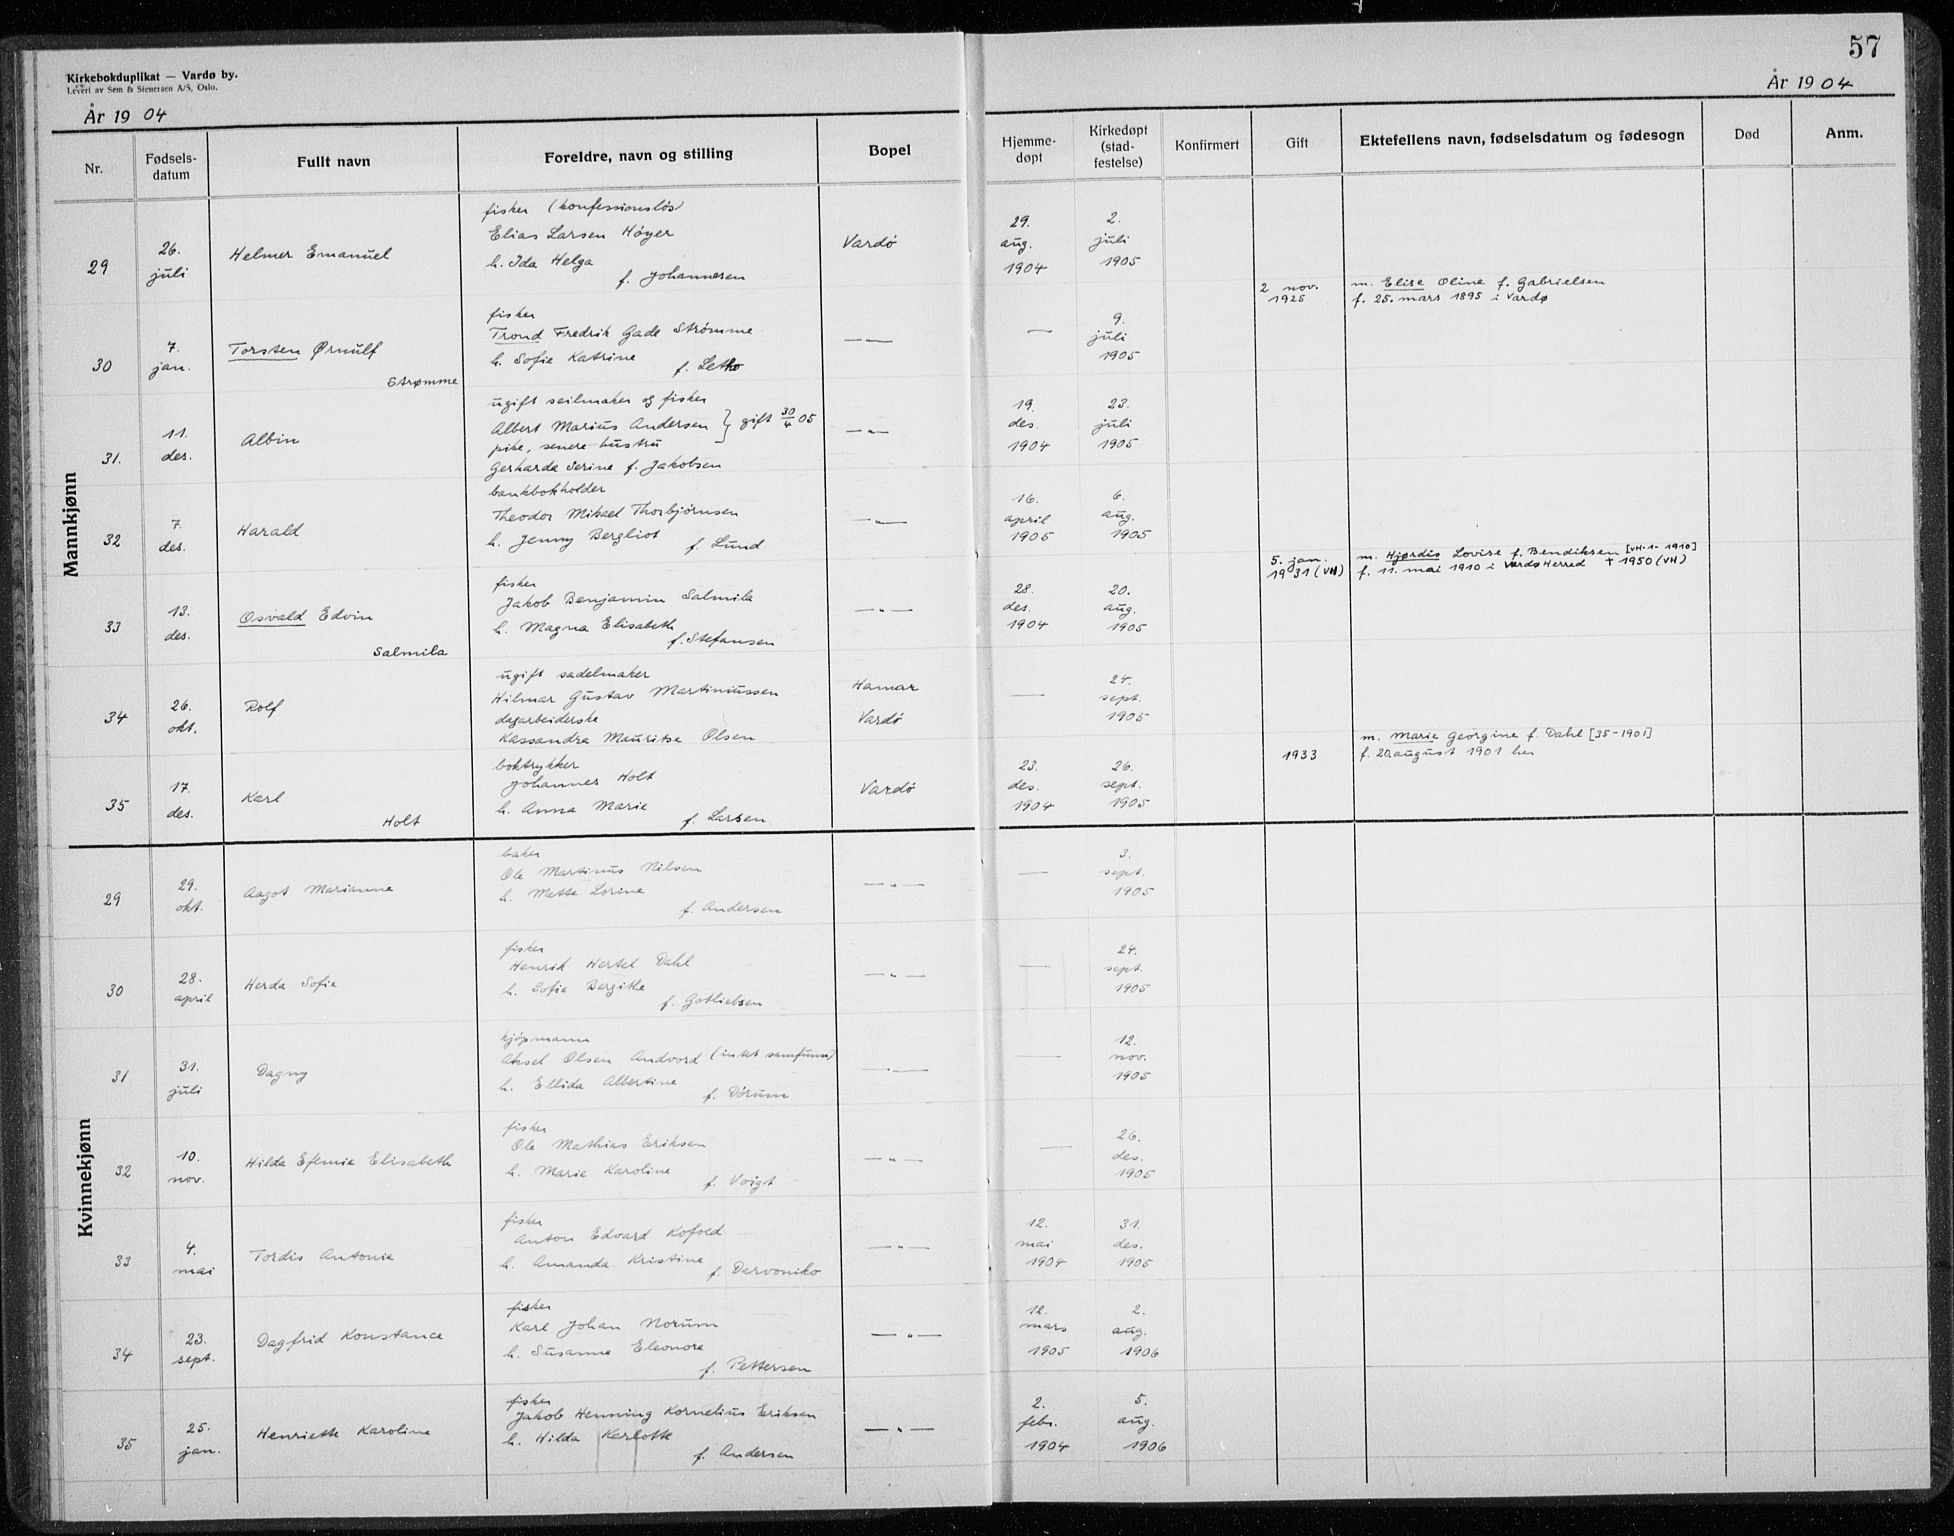 57
Kirkebokduplikat — Vardø by.
Levert av Sem & Stenersen A/S, Oslo.
År 1904
År 1904
Nr.
Fødsels-
datum
Fullt navn
Foreldre, navn og stilling
Bopel
Hjemme-
døpt
Kirkedøpt
(stad-
festelse)
Konfirmert
Gift
Ektefellens navn, fødselsdatum og fødesogn
Død
Anm.
Mannkjønn
29
26.
juli
Helmer Emanuel
fisker (konfessionsløs)
Elias Larsen Høyer
h. Ida Helga
f. Johannesen
Vardø
29.
aug.
1904
2.
juli
1905
30
7.
jan.
Torsten Ørnulf
Strømme
fisker
Trond Fredrik Gade Strømme
h. Sofie Katrine
f. Letho
— " —
—
9.
juli
1905
2 nov.
1925
m. Elise Oline f. Gabrielsen
f. 25. mars 1895 i Vardø
31.
11.
des.
Albin
ugift seilmaker og fisker
Albert Marius Andersen } gift 30/4 05
pike, senere hustru
Gerharda Serine f. Jakobsen
— " —
19.
des.
1904
23.
juli
1905
32
7.
des.
Harald
bankbokholder
Theodor Mikael Thorbjørnsen
h. Jenny Bergliot
f. Lund
— " —
16.
april
1905
6.
aug.
1905
33
13.
des.
Osvald Edvin
Salmila
fisker
Jakob Benjamin Salmila
h. Magna Elisabeth
f. Stefansen
— " —
28.
des.
1904
20.
aug.
1905
5. jan.
1931 (VH)
m. Hjørdis Lovise f. Bendiksen [VH-1-1910]
f. 11. mai 1910 i Vardø Herred + 1950 (VH)
34
26.
okt.
Rolf
ugift sadelmaker
Hilmar Gustav Martiniussen
dagarbeiderske
Kassandra Mauritse Olsen
Hamar
Vardø
—
24.
sept.
1905
35
17.
des.
Karl
Holt
boktrykker
Johannes Holt
h. Anna Marie
f. Larsen
Vardø
23.
des.
1904
26.
sept.
1905
1933
m. Marie Georgine f. Dahl [35-1901]
f. 20. august 1901 her
Kvinnekjønn
29
29.
okt.
Aagot Marianne
baker
Ole Martinus Nilsen
h. Mette Lorine
f. Andersen
— " —
—
3.
sept.
1905
30
28.
april
Herda Sofie
fisker
Henrik Hertel Dahl
h. Sofie Bergithe
f. Gotliebsen
— " —
—
24.
sept.
1905
31
31.
juli
Dagny
kjøpmann
Aksel Olsen Andvord (intet samfunn)
h. Ellida Albertine
f. Dørum
— " —
—
12.
nov.
1905
32
10.
nov.
Hilda Efemie Elisabeth
fisker
Ole Mathias Eriksen
h. Marie Karoline
f. Voigt
— " —
—
26.
des.
1905
33
4.
mai
Tordis Antonie
fisker
Anton Edvard Kofold
h. Amanda Kristine
f. Darvoniko
— " —
12.
mai
1904
31.
des.
1905
34
23.
sept.
Dagfrid Konstance
fisker
Karl Johan Norum
h. Susanne Eleonore
f. Pettersen
— " —
12.
mars
1905
2.
aug.
1906
35
25.
jan.
Henriette Karoline
fisker
Jakob Henning Kornelius Eriksen
h. Hilda Karlotte
f. Andersen
— " —
2.
febr.
1904
5.
aug.
1906